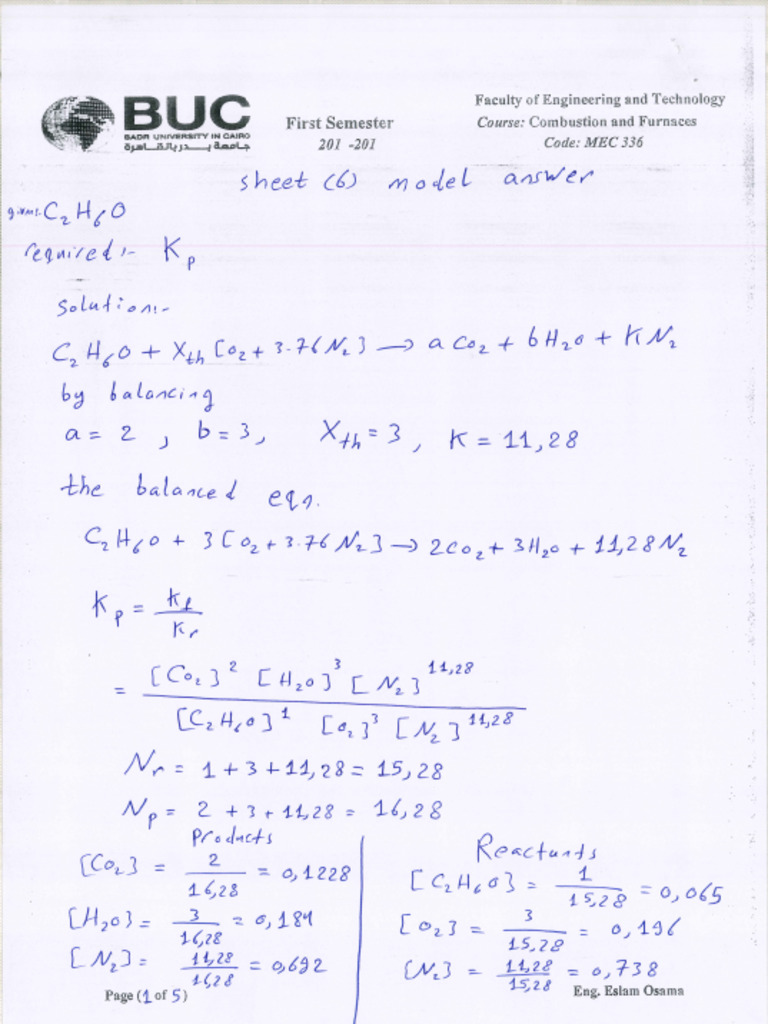 BUC
BADR UNIVERSITY IN CAIRO
جامعة بدر بالقاهرة
First Semester
201 -201
Faculty of Engineering and Technology
Course: Combustion and Furnaces
Code: MEC 336
sheet (6) model answer
given:- C₂H₆O
required:- Kₚ
Solution:-
C₂H₆O + Xₜₕ [O₂ + 3.76 N₂] → a CO₂ + b H₂O + K N₂
by balancing
a = 2 , b = 3, Xₜₕ = 3 , K = 11,28
the balanced eqn.
C₂H₆O + 3 [O₂ + 3.76 N₂] → 2CO₂ + 3H₂O + 11,28 N₂
Kₚ = K_f / Kᵣ
= [CO₂]² [H₂O]³ [N₂]^11,28 / [C₂H₆O]¹ [O₂]³ [N₂]^11,28
Nᵣ = 1 + 3 + 11,28 = 15,28
Nₚ = 2 + 3 + 11,28 = 16,28
Products
[CO₂] = 2 / 16,28 = 0,1228
[H₂O] = 3 / 16,28 = 0,184
[N₂] = 11,28 / 16,28 = 0,692
Reactants
[C₂H₆O] = 1 / 15,28 = 0,065
[O₂] = 3 / 15,28 = 0,196
[N₂] = 11,28 / 15,28 = 0,738
Page (1 of 5)
Eng. Eslam Osama